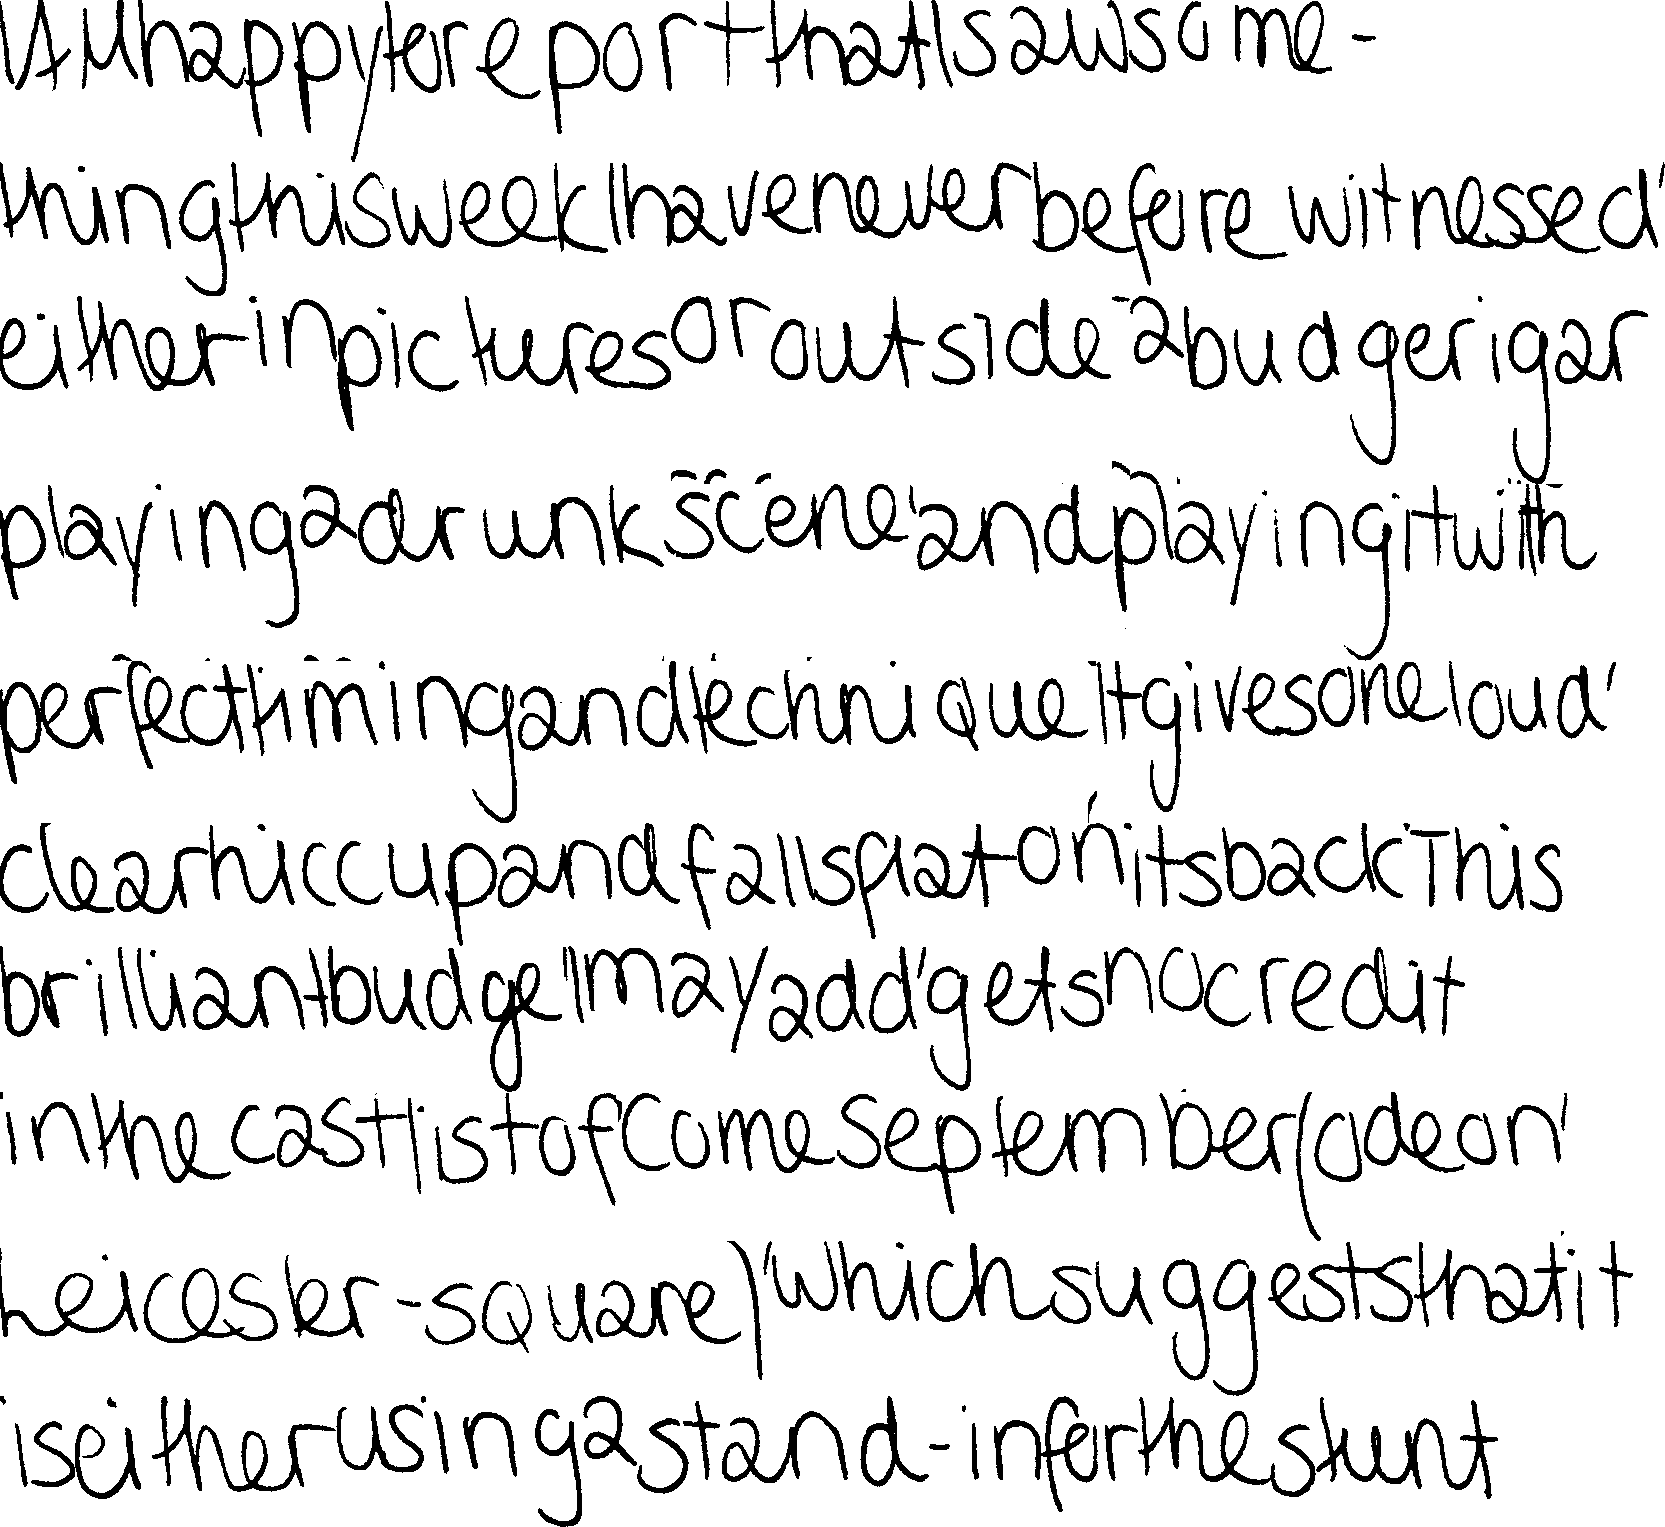 I AM happy to report that I saw some-
thing this week I have never before witnessed,
either in pictures or out side a budgerigar
playing a drunk scene, and playing it with
perfect timing and technique It gives one loud,
clear hiccup and falls flat on its back This
brilliant budge, I may add, gets no credit
in the cast list of Come September (odeon,
Leicester-square), which suggests that it
is either using a stand-in for the stunt